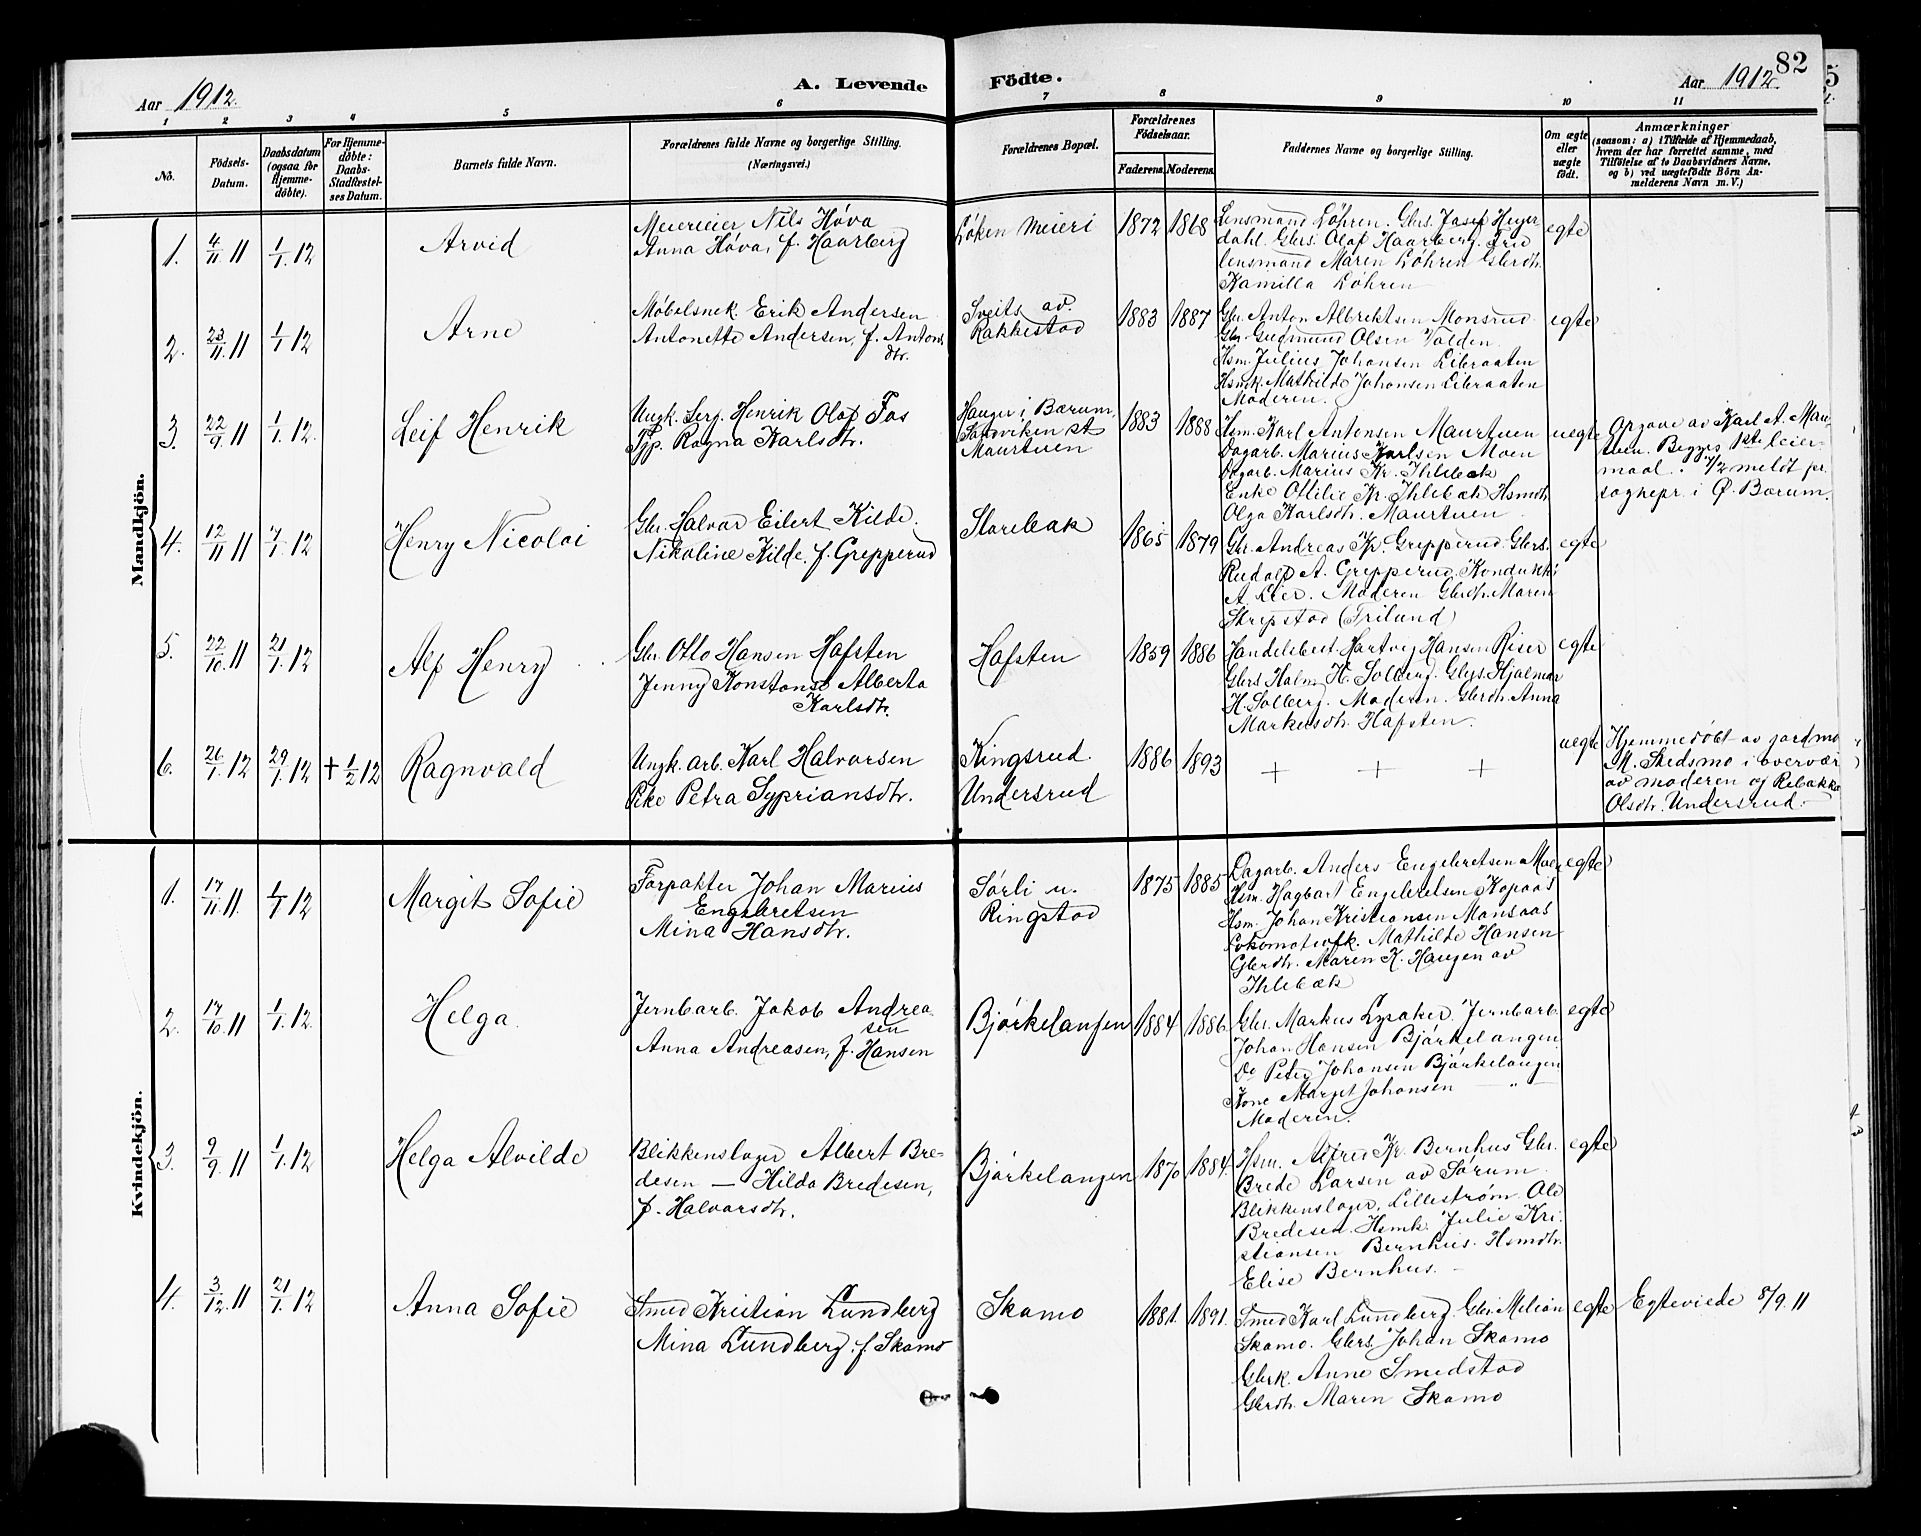 82
Aar 1912.
A. Levende
Födte.
Aar 1912
1 2 3 4 5 6 7 8 9 10 11
No.
Födsels-
Datum.
Daabsdatum
(ogsaa for
Hjemme-
döbte).
For Hjemme-
döbte:
Daabs-
Stadfæstel-
ses Datum.
Barnets fulde Navn.
Forældrenes fulde Navne og borgerlige Stilling.
(Næringsvei.)
Forældrenes Bopæl.
Forældrenes
Födselsaar.
Faderens. Moderens.
Faddernes Navne og borgerlige Stilling.
Om ægte
eller
uægte
födt.
Anmærkninger
(saasom: a) i Tilfælde af Hjemmedaab,
hvem der har forrettet samme, med
Tilföielse af to Daabsvidners Navne,
og b) ved uægtefödte Börn An-
melderens Navn m. V.)
Mandkjön.
1. 4/11 11 1/1 12
Arvid
Meiereier Nils Høva
Anna Høva, f. Haarberg
Løken Meieri
1872 1868
Lensmand Løhren. Gbrs. Josef Heyer
dahl. Gbrs. Olaf Haarberg. Frie
lensmand Maren Løhren Gbrdtr.
Kamilla Løhren
egte
2. 23/11 11 1/1 12
Arne
Møbelsnek. Erik Andersen
Antonette Andersen, f. Antons
dtr.
Sveits av.
Rakkestad
1883 1887
Gbr. Anton Albrektsen Monsrud
Gbr. Gudmund Olsen Tolden
Hsm. Julius Johansen Libraaten
Hsmk. Mathilde Johansen Libraaten
Moderen.
egte
3. 22/9 11 1/1 12.
Leif Henrik
Ungk. Serg. Henrik Olaf Fos
Tjp. Ragna Karlsdtr.
Hauger i Bærum,
Sandviken st
Maurtuen
1883 1888
Hsm. Karl Antonsen Maurtuen
Dagarb. Marius Karlsen Moen
Dagarb. Marius Kr. Ihlebæk
Enke Ottilie Kr. Ihlebæk Hsmdtr.
Olga Karlsdtr. Maurtuen
uegte
Opgave av Karl A. Maur-
tuen. Begges 1ste leier-
maal. 7/2 meldt for
sognepr. i Ø. Bærum.
4. 12/11 11 7/1 12
Henry Nicolai
Gbr. Halvar Eilert Kilde.
Nikoline Kilde f. Grepperud
Storebak
1865 1879
Gbr. Andreas Kr. Grepperud. Gbrs.
Rudolf A. Grepperud. Konduktør
A Lier. Moderen Gbrdtr. Maren
Skrepstad (Friland)
egte
5. 22/10 11 21/1 12
Alf Henry
Gbr. Otto Hansen Hafsten
Jenny Konstanse Alberta
Karlsdtr.
Hafsten
1859 1886
Handelsbest. Hartvig Hansen Riser
Gbrs Halm. H. Solberg. Gbrs. Hjalmar
H. Solberg. Moderen. Gbrdtr. Anna
Markusdtr. Hafsten.
egte
6. 26/1 12 29/1 12 + 1/2 12
Ragnvald
Ungk. arb. Karl Halvorsen
Pike Petra Sypriansdtr.
Kingsrud.
Undersrud
1886 1893
+ + +
uegte
Hjemmedøbt av jordmo
M. Skedsmo i overvær
av moderen og Rebakka
Olsdtr. Undersrud.
Kvindekjön.
1. 17/11 11. 1/1 12
Margit Sofie
Forpakter Johan Marius
Engebretsen
Mina Hansdtr.
Sørli u.
Ringstad
1875 1885
Dagarb. Anders Engebretsen Moen
Hsm. Hagbart Engebretsen Kopaas
Hsm. Johan Kristiansen Monsaas
Lokomotivfk. Mathilde Hansen
Gbrdtr. Maren K. Haugen av
Ihlebæk
egte
2. 17/10 11 1/1 12.
Helga
Jernbarb. Jakob Andrea-
sen
Anna Andreasen, f. Hansen
Bjørkelangen
1884 1886
Gbr. Markus Lysaker. Jernbarb.
Johan Hansen Bjørkelangen
Do Peter Johansen Bjørkelangen
Kone Margit Johansen — " —
Moderen.
egte
3. 9/9 11 1/1 12
Helga Alvilde
Blikkenslager Albert Bre-
desen — Hilda Bredesen,
f. Halvorsdtr.
Bjørkelangen
1870 1884.
Hsm. Alfred Kr. Bernhus Gbr.
Brede Larsen av Sørum
Blikkenslager, Lillestrøm. Ole
Bredesen. Hsmk. Julie Kri-
stiansen Bernhus. Hsmdtr.
Elise Bernhus.
egte
4. 3/12 11 21/1 12
Anna Sofie
Smed Kristian Lundberg
Mina Lundberg. f. Skamo
Skamo
1881. 1891.
Smed Karl Lundberg. Gbr. Melian
Skamo. Gbrs. Johan Skamo
Gbrk. Anne Smedstad
Gbrdtr. Maren Skamo
egte
Egteviede 8/9 11